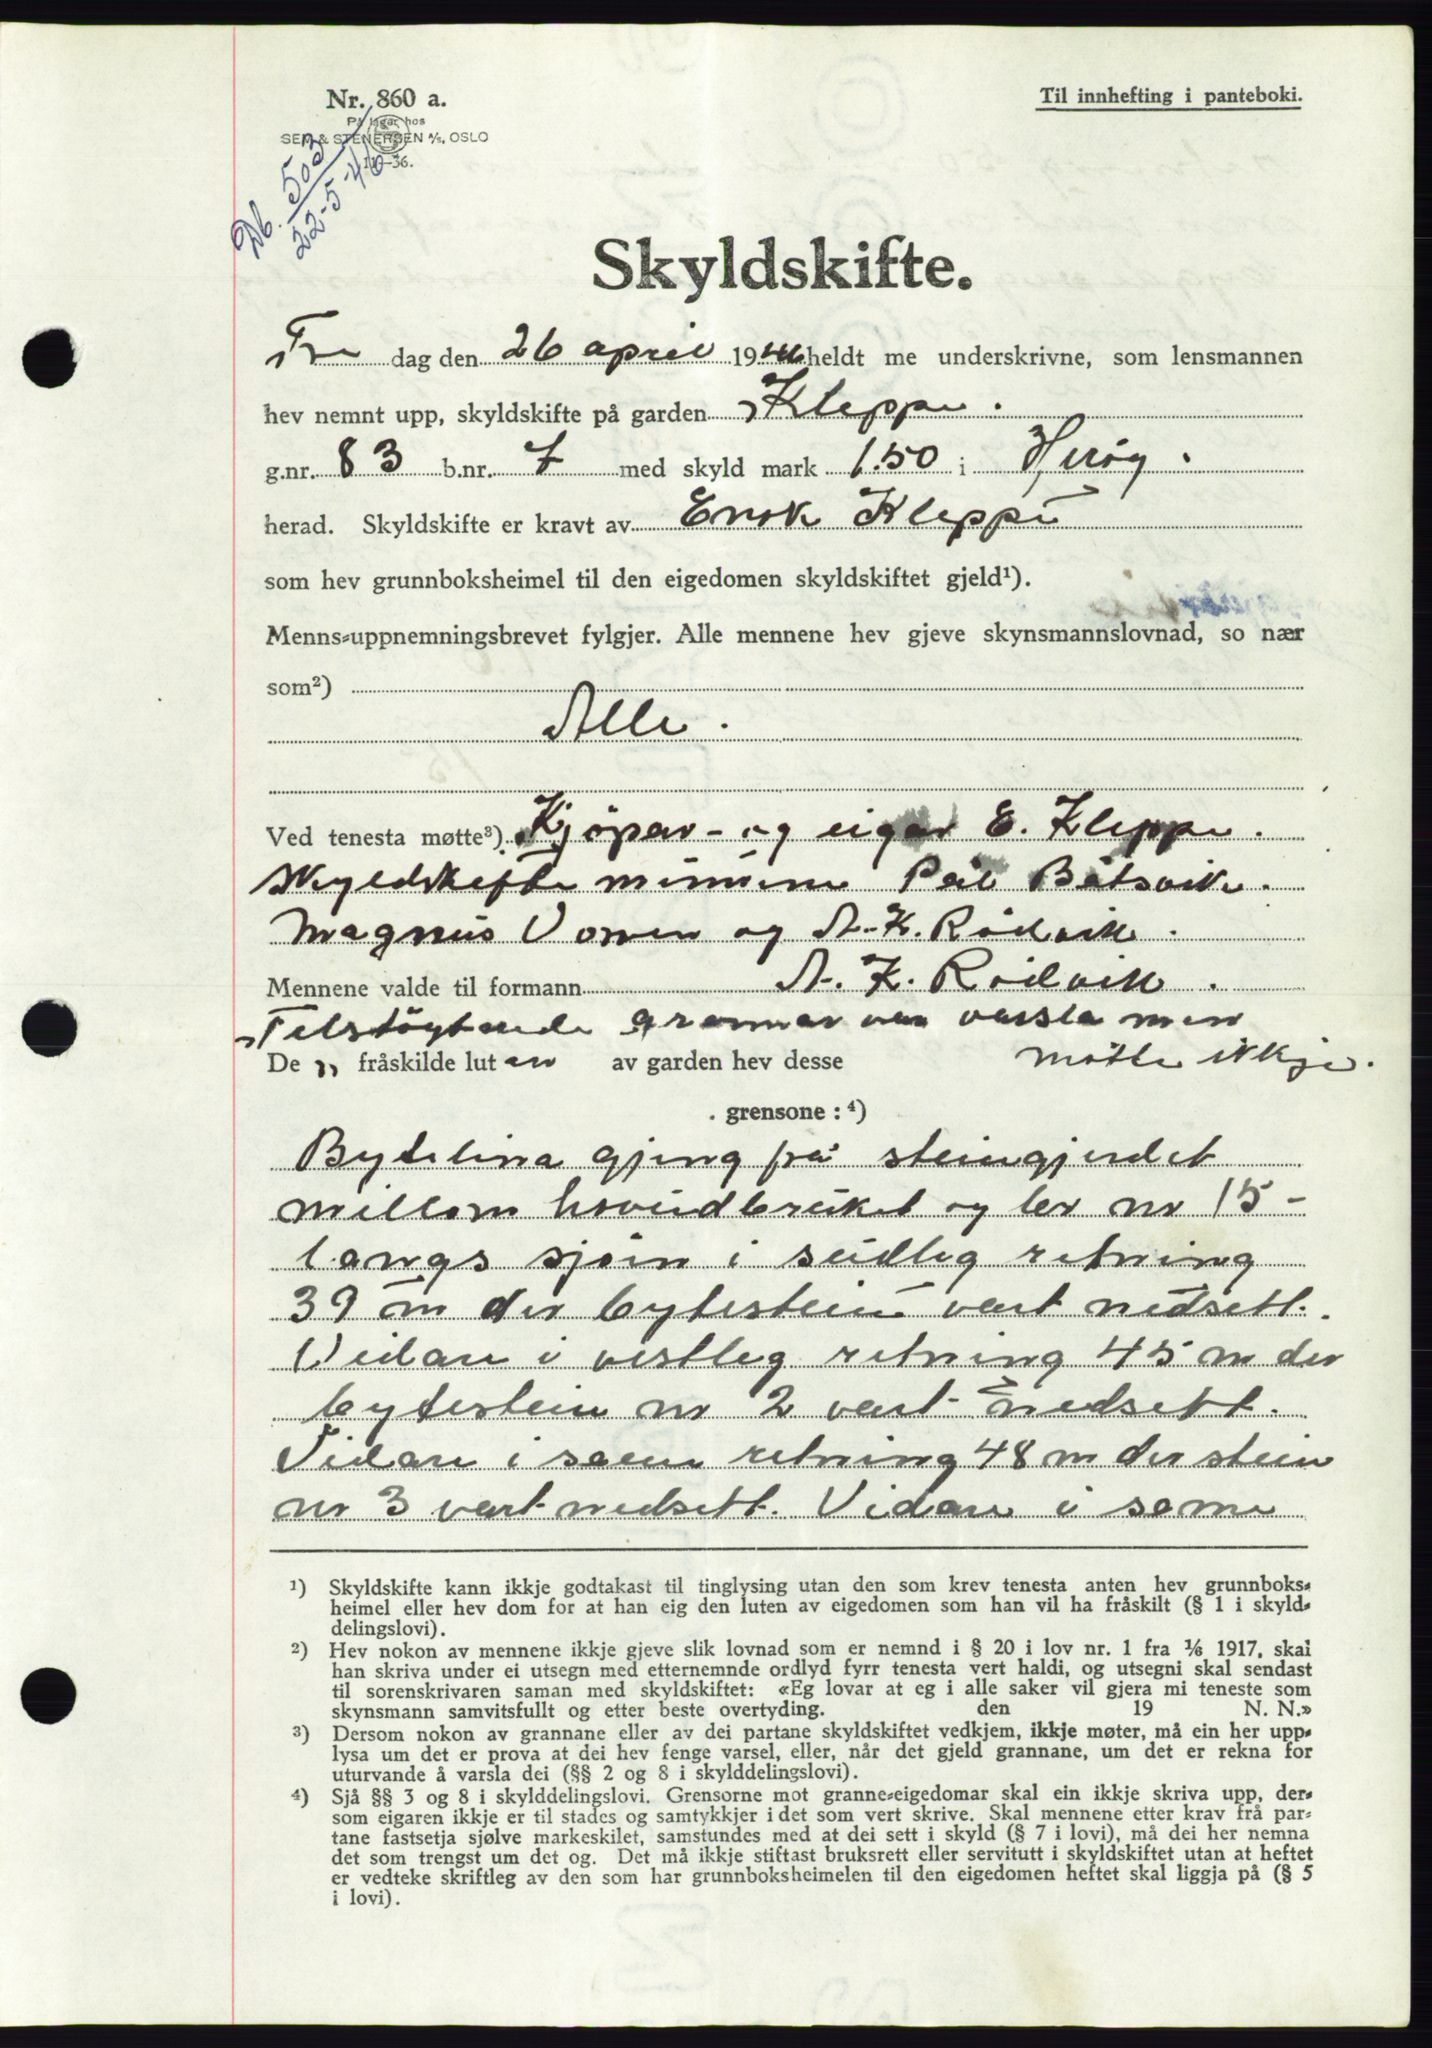 Nr. 860 a.
Til innhefting i panteboki.
På lager hos
SEM & STENERSEN A/S, OSLO
11-36.
Db. 503
22-5-46
Skyldskifte.
Fre dag den 26 april 1946 heldt me underskrivne, som lensmannen
hev nemnt upp, skyldskifte på garden Kleppe.
g.nr. 83 b.nr. 7 med skyld mark 1.50 i Herøy.
herad. Skyldskifte er kravt av Enok Kleppe
som hev grunnboksheimel til den eigedomen skyldskiftet gjeld¹).
Menns-uppnemningsbrevet fylgjer. Alle mennene hev gjeve skynsmannslovnad, so nær
som²)
Alle.
Ved tenesta møtte³) Kjöpar- og eigar E. Kleppe.
Skyldskifte mennene Pål Båtsvik.
Magnus Voren og A. K. Rödvik.
Mennene valde til formann A. K. Rödvik.
Tilstöytande grannar var varsla men
De n fråskilde lut en av garden hev desse møtte ikkje.
grensone : ⁴)
Bytelina gjeng frå steingjerdet
millom hovudbruket og br nr 15-
langs sjöen i sudleg retning
39 m der bytestein vart nedsett.
Vidare i vestleg retning 45 m der
bytestein nr 2 vart nedsett.
Vidare i same retning 48 m der stein
nr 3 vart nedsett. Vidare i same
¹) Skyldskifte kann ikkje godtakast til tinglysing utan den som krev tenesta anten hev grunnboks-
heimel eller hev dom for at han eig den luten av eigedomen som han vil ha fråskilt (§ 1 i skyld-
delingslovi).
²) Hev nokon av mennene ikkje gjeve slik lovnad som er nemnd i § 20 i lov nr. 1 fra 1/6 1917, skal
han skriva under ei utsegn med etternemnde ordlyd fyrr tenesta vert haldi, og utsegni skal sendast
til sorenskrivaren saman med skyldskiftet: «Eg lovar at eg i alle saker vil gjera mi teneste som
skynsmann samvitsfullt og etter beste overtyding. den 19 N. N.»
³) Dersom nokon av grannane eller av dei partane skyldskiftet vedkjem, ikkje møter, må ein her upp-
lysa um det er prova at dei hev fenge varsel, eller, når det gjeld grannane, um det er rekna for
uturvande å varsla dei (§§ 2 og 8 i skylddelingslovi).
⁴) Sjå §§ 3 og 8 i skylddelingslovi. Grensorne mot granne-eigedomar skal ein ikkje skriva upp, der-
som eigaren ikkje er til stades og samtykkjer i det som vert skrive. Skal mennene etter krav frå par-
tane fastsetja sjølve markeskilet, samstundes med at dei sett i skyld (§ 7 i lovi), må dei her nemna
det som trengst um det og. Det må ikkje stiftast bruksrett eller servitutt i skyldskiftet utan at heftet
er vedteke skriftleg av den som har grunnboksheimelen til den eigedomen heftet skal liggja på (§ 5
i lovi).